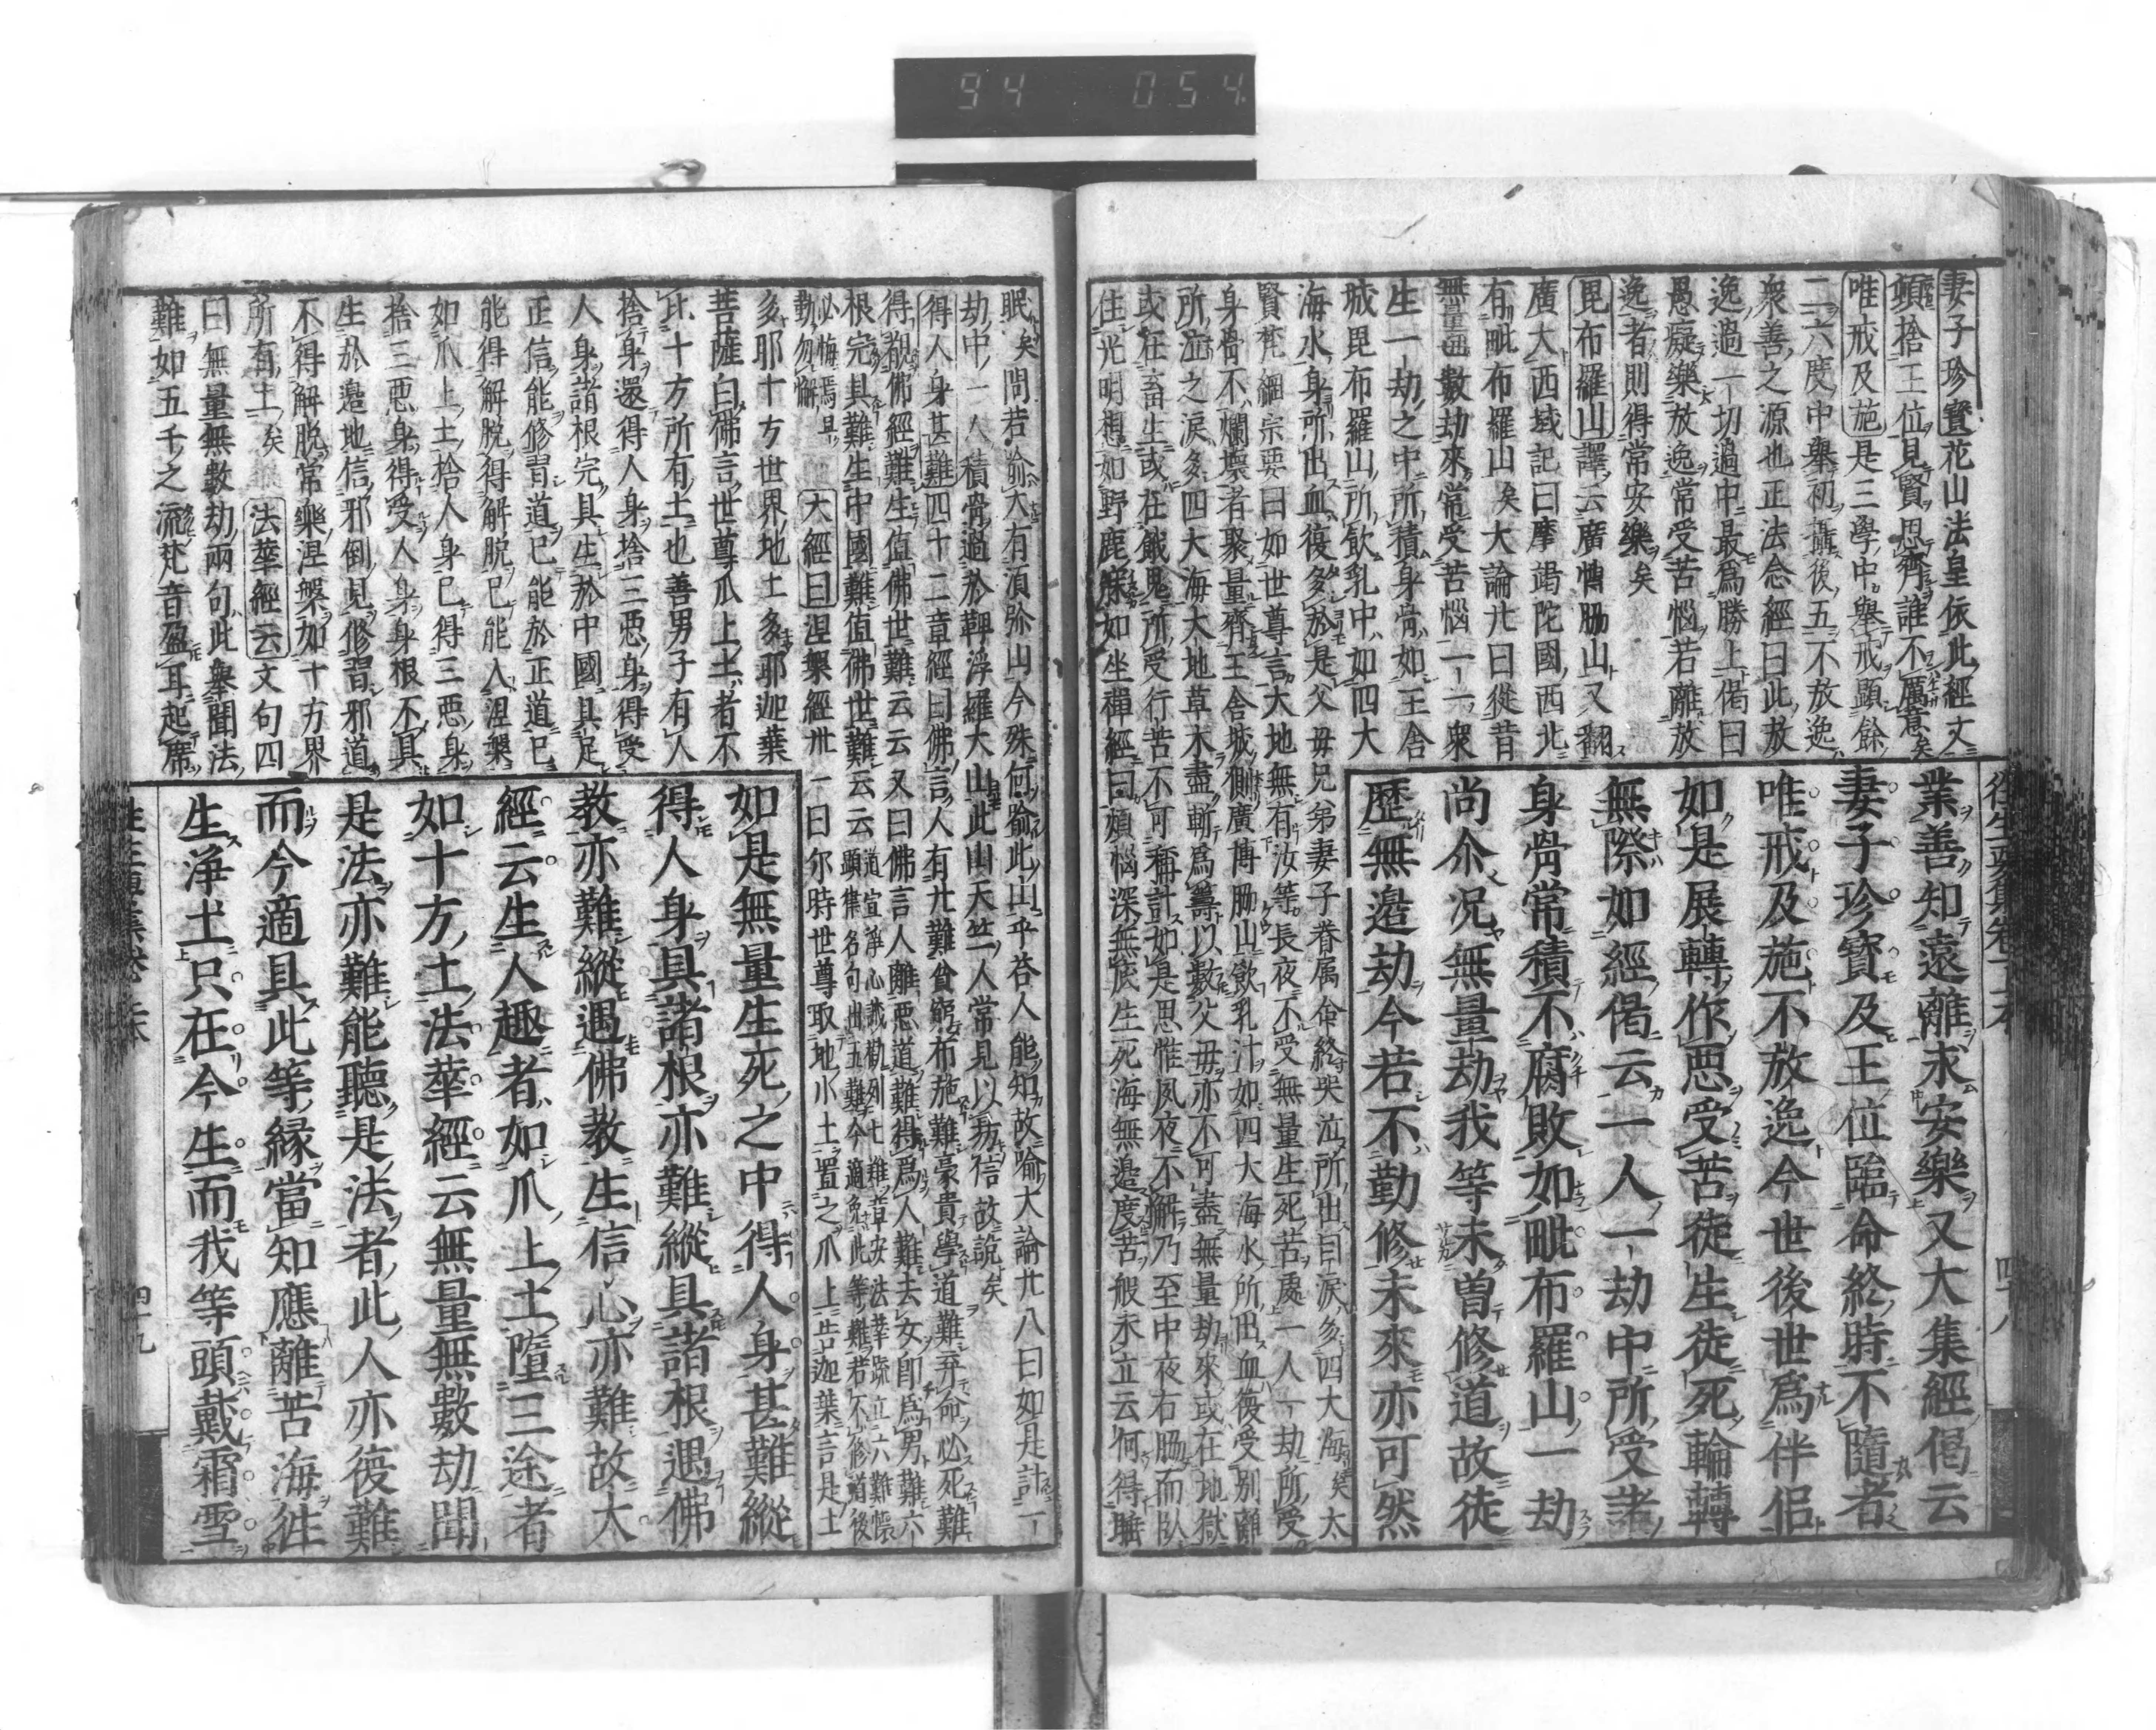 94 054
妻子珍寶花山法皇依此經文
頓捨王位見賢思齊誰不厲意矣
唯戒及施是三學中舉戒顯餘
二六度中舉初攝後五不放逸
衆善之源也正法念經曰此放
逸過一切過中最爲勝上偈曰
愚癡樂放逸常受苦惱若離放
逸者則得常安樂矣
毘布羅山譯云廣博脇山又翻
廣大西域記曰摩竭陀國西北
有毗布羅山矣大論廾曰從昔
無量無數劫來常受苦惱一一衆
生一劫之中所積身骨如王舍
城毘布羅山所飲乳中如四大
海水身所出血復多於是父母兄弟妻子眷属命終哭泣所出目淚多四大海矣太
賢梵綱宗要曰如世尊言大地無有汝等長夜不受無量生死苦處一人一劫所受
身骨不爛壞者聚量齊王舍城側廣博脇山飲乳汁如四大海水所出血復受別離
所泣之淚多四大海大地草木盡斬爲籌以數父母亦不可盡無量劫來或在地獄
或在畜生或在餓鬼所受行苦不可稱計如是思惟夙夜不懈乃至中夜右脇而臥
住光明想如野鹿寐如坐禪經曰煩惱深無底生死海無邊度苦般永立云何得睡
業善知遠離求安樂又大集經偈云
妻子珍寶及王位臨命終時不隨者
唯戒及施不放逸今世後世爲伴侶
如是展轉作惡受苦徒生徒死輪轉
無際如經偈云一人一劫中所受諸
身骨常積不腐敗如毗布羅山一劫
尚尒況無量劫我等未曽修道故徒
歷無邉劫今若不勤修未來亦可然
四十八
眠矣問若喩大有須弥山今殊何喩此山乎荅人能知故喩大論廾八曰如是計一
劫中一人積骨過於鞞浮羅大山此山天竺人常見以易信故説矣
得人身甚難四十二章經曰佛言人有廾難貧窮布施難豪貴學道難弃命必死難
得覩佛經難生值佛世難云云又曰佛言人離惡道難得爲人難去女即爲男難六
根完具難生中國難值佛世難云云
大經曰涅槃經卅一曰尒時世尊取地小土置之爪上告迦葉言是土
多耶十方世界地土多耶迦葉
菩薩白佛言世尊爪上土者不
比十方所有土也善男子有人
捨身還得人身捨三惡身得受
人身諸根完具生於中國具足
正信能修習道已能於正道已
能得解脱得解脱已能入涅槃
如爪上土捨人身已得三惡身
捨三惡身得受人身身根不具
生於邉地信邪倒見修習邪道
不得解脱常樂涅槃如十方界
所有土矣 法華經云文句四
曰無量無數劫兩句此舉聞法
難如五千之流梵音盈耳起席
如是無量生死之中得人身甚難縱
得人身具諸根亦難縱具諸根遇佛
教亦難縱遇佛教生信心亦難故大
經云生人趣者如爪上土墮三途者
如十方土法華經云無量無數劫聞
是法亦難能聽是法者此人亦復難
而今適具此等縁當知應離苦海徃
生淨土只在今生而我等頭戴霜雪
四十九